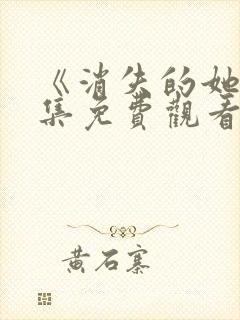 《消失的她
集免費觀看
黃石寨